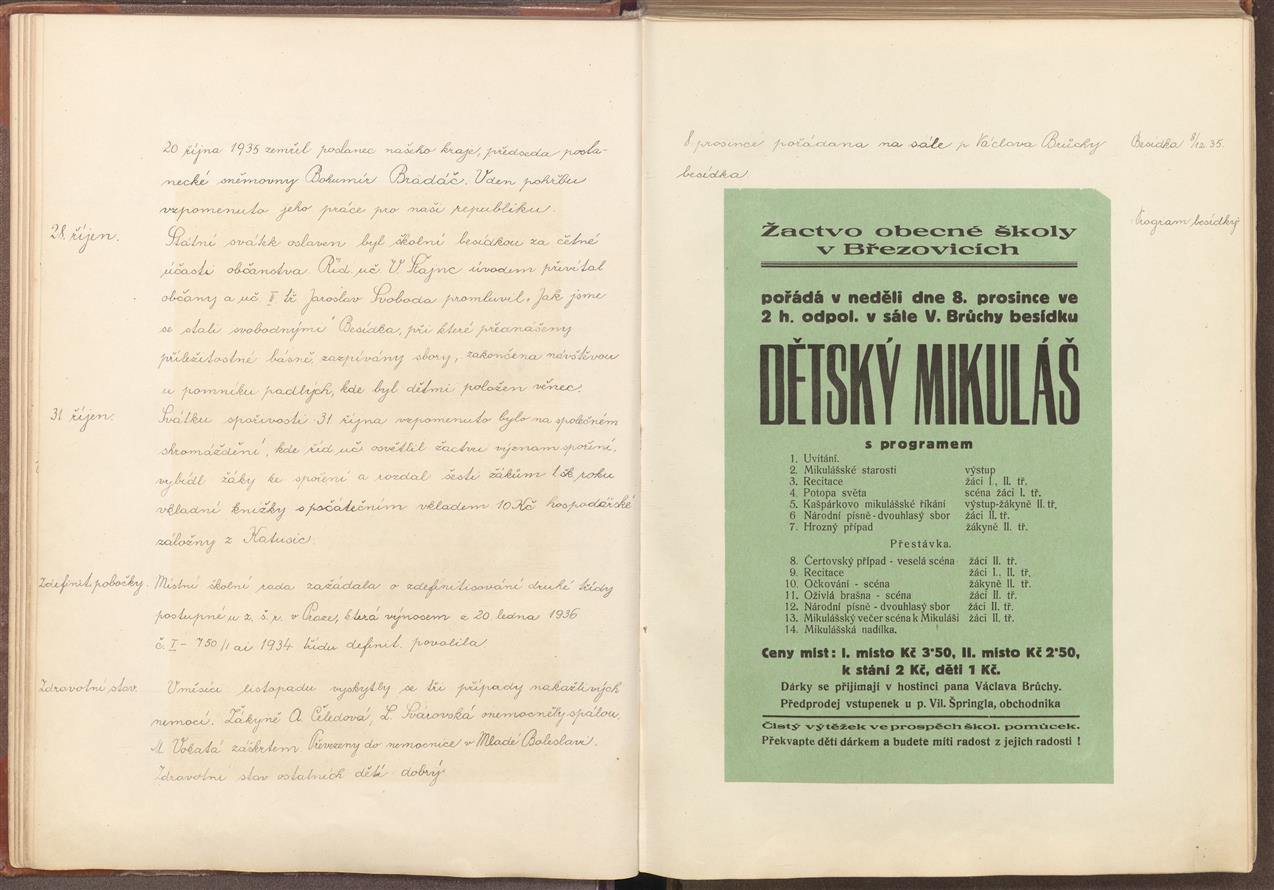 20 října 1935 zemřel poslanec našeho kraje, předseda posla-
necké sněmovny Bohumír Bradáč. V den pohřbu
vzpomenuto jeho práce pro naši republiku.
28. říjen.
Státní svátek oslaven byl školní besídkou za četné
účasti občanstva. Říd. uč. V. Štajnc úvodem přivítal
občany a uč. II. tř. Jaroslav Svoboda promluvil „Jak jsme
se stali svobodnými" Besídka, při které přednášeny
příležitostné básně, zazpívány sbory, zakončena návštěvou
u pomníku padlých, kde byl dětmi položen věnec.
31. říjen.
Svátku spořivosti 31. října vzpomenuto bylo na společném
shromáždění, kde říd. uč. osvětlil žactvu význam spoření,
vybídl žáky ke spoření a rozdal šesti žákům I. šk. roku
vkladní knížky s počátečním vkladem 10 Kč hospodářské
záložny z Katusic.
Zdefinit. pobočky.
Místní školní rada zažádala o zdefinitisování druhé třídy
postupné u z. š. r. v Praze, která výnosem z 20. ledna 1936
č. I - 750/1 ai 1934 třídu definit. povolila.
Zdravotní stav.
V měsíci listopadu vyskytly se tři případy nakažlivých
nemocí. Žákyně A. Čeledová, L. Svárovská onemocněly spálou,
M. Vokatá záškrtem. Převezeny do nemocnice v Mladé Boleslavi.
Zdravotní stav ostatních dětí dobrý
8 prosince pořádana na sále p. Václava Brůchy
besídka
Besídka 8/12. 35.
Program besídky
Žactvo obecné školy
v Březovicích
pořádá v neděli dne 8. prosince ve
2 h. odpol. v sále V. Brůchy besídku
DĚTSKÝ MIKULÁŠ
s programem
1. Uvítání.
2. Mikulášské starosti výstup
3. Recitace žáci I., II. tř.
4. Potopa světa scéna žáci I. tř.
5. Kašpárkovo mikulášské říkání výstup-žákyně II. tř.
6 Národní písně-dvouhlasý sbor žáci II. tř.
7. Hrozný případ žákyně II. tř.
Přestávka.
8. Čertovský případ - veselá scéna žáci II. tř.
9. Recitace žáci I., II. tř.
10. Očkování - scéna žákyně II. tř.
11. Oživlá brašna - scéna žáci II. tř.
12. Národní písně - dvouhlasý sbor žáci II. tř.
13. Mikulášský večer scéna k Mikuláši žáci II. tř.
14. Mikulášská nadílka.
Ceny míst: I. místo Kč 3·50, II. místo Kč 2·50,
k stání 2 Kč, děti 1 Kč.
Dárky se přijímají v hostinci pana Václava Brůchy.
Předprodej vstupenek u p. Vil. Špringla, obchodníka
Čistý výtěžek ve prospěch škol. pomůcek.
Překvapte děti dárkem a budete míti radost z jejich radosti !